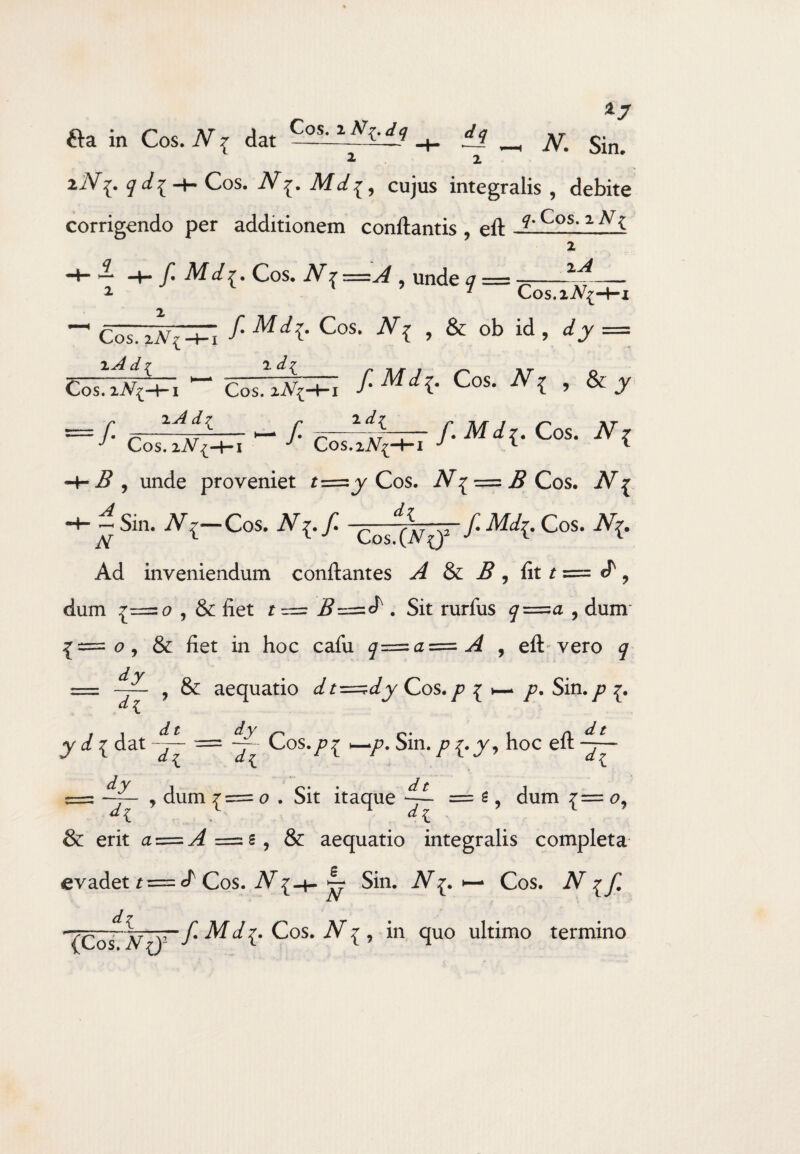 27
ſta in Cos. N ζ dat Cos. 2 Nζ. dq / 2 + dq / 2 — N. Sin.
2Nζ. q dζ + Cos. Nζ. M dζ, cujus integralis , debite
corrigendo per additionem conſtantis , eſt q. Cos. 2 Nζ / 2
+ q / 2 + ſ. M dζ. Cos. Nζ = A , unde q = 2A / Cos. 2Nζ+1
— 2 / Cos. 2Nζ+1 ſ. M dζ. Cos. Nζ , & ob id , dy =
2A dζ / Cos. 2Nζ+1 — 2 dζ / Cos. 2Nζ+1 ſ. M dζ. Cos. Nζ , & y
= ſ. 2A dζ / Cos. 2Nζ+1 — ſ. 2dζ / Cos. 2Nζ+1 ſ. M dζ. Cos. Nζ
+ B , unde proveniet t=y Cos. Nζ = B Cos. Nζ
+ A / N Sin. Nζ—Cos. Nζ. ſ. dζ / Cos. (Nζ)² ſ. Mdζ. Cos. Nζ.
Ad inveniendum conſtantes A & B , ſit t = δ ,
dum ζ=o , & fiet t = B=δ . Sit rurſus q=a , dum
ζ= o , & fiet in hoc caſu q=a= A , eſt vero q
= dy / dζ , & aequatio dt=dy Cos. p ζ — p. Sin. p ζ.
y d ζ dat dt / dζ = dy / dζ Cos. pζ —p. Sin. p ζ. y, hoc eſt dt / dζ
= dy / dζ , dum ζ= o . Sit itaque dt / dζ = ε , dum ζ= o,
& erit a=A = ε , & aequatio integralis completa
evadet t= δ Cos. Nζ+ ε / N Sin. Nζ. — Cos. N ζ ſ.
dζ / (Cos. Nζ)² ſ. M dζ. Cos. Nζ , in quo ultimo termino